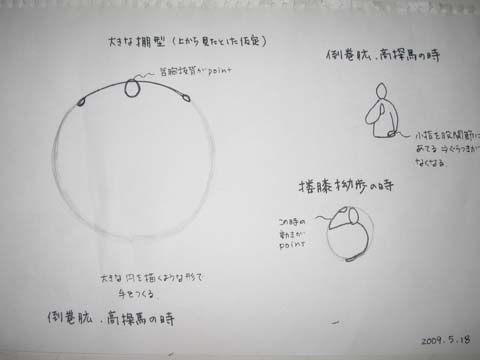 大きな棚型(上から見たとした仮定)
含胸抜背がpoint
大きな円を描くような形で
手をつくる。
倒巻肱、高探馬の時
倒巻肱、高探馬の時
小指を股関節に
あてる⇒ぐらつきが
なくなる。
搂膝拗歩の時
この時の
動きが
point
2009.5.18